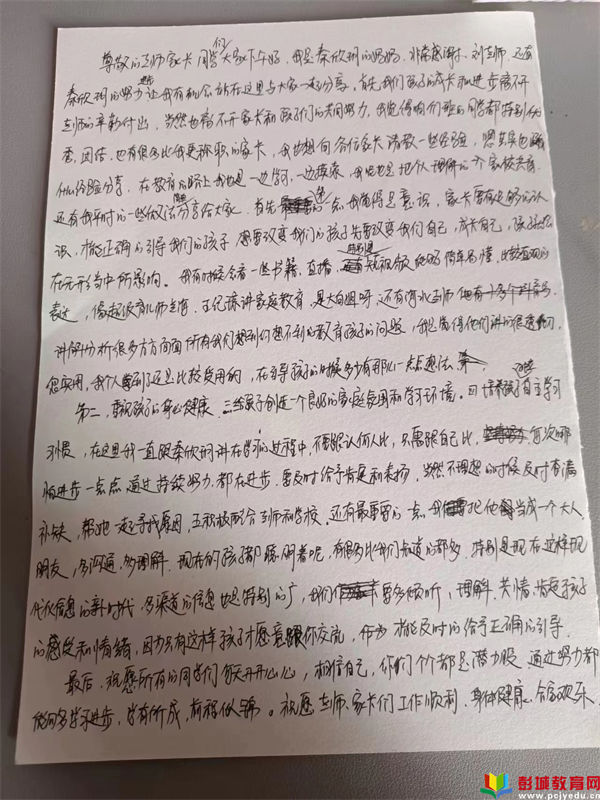 尊敬的老师家长同学们大家下午好,我是秦欣玥的妈妈,非常感谢刘老师,还有
秦欣玥的努力让我有机会站在这里与大家一起分享,首先我们孩子的成长和进步离不开
老师的辛勤付出,当然也离不开家长和孩子们的共同努力,我觉得咱们班的同学都特别优
秀,团结,也有很多比我更称职的家长,我也想向各位家长请教一些经验,
什么经验分享,在教育的路上我也是一边学习,一边摸索,我也是把个人理解的一个家校共育
还有我平时的一些做法分享给大家,首先第一点我觉得是意识,家长要有足够的认
识,才能正确的引导我们的孩子,想要改变我们的孩子先要改变我们自己,成长自己,孩子会
在无形当中所影响。我有时候会看一些书籍,直播,特别是短视频 简单易懂,比较直观的
表达,像赵很育儿师兰海,王纪琼讲家庭教育,是大白姐呀,还有河北老师
讲解分析很多方方面面所有我们想到的想不到的教育孩子的问题,我是觉得他们讲的很透彻,
很实用,我个人看到了还是比较受用的,在引导孩子的时候多少有那么一点点想法
第二,重视孩子的身心健康,三给孩子创造一个良好的家庭氛围和学习环境。四培养孩子自主学习
习惯,在这里我一直跟秦欣玥讲在学习的过程中,不要跟认何人比,只需跟自己比,每次哪
怕进步一点点,通过持续努力都在进步,要及时给予肯定和表扬,当然不理想的时候及时查漏
补缺,帮她一起寻找原因,五积极配合老师和学校。还有最重要的一点我把他当成一个大人,
朋友,多沟通,多理解,现在的孩子都聪明着呢,有很多比我们知道的都多,特别是现在这样现
代化信息的新时代,多渠道的信息也是特别的广,我们要多倾听,理解,共情,肯定孩子
的感受和情绪,因为只有这样孩子才愿意跟你交流,作为 才能及时的给予正确的引导
最后,祝愿所有的同学们每天开开心心,相信自己,你们个个都是潜力股,通过努力都
能够多学多进步,学有所成,前程似锦。祝愿老师、家长们工作顺利,身体健康,合家欢乐
彭城教育网
www.pcjyedu.cn